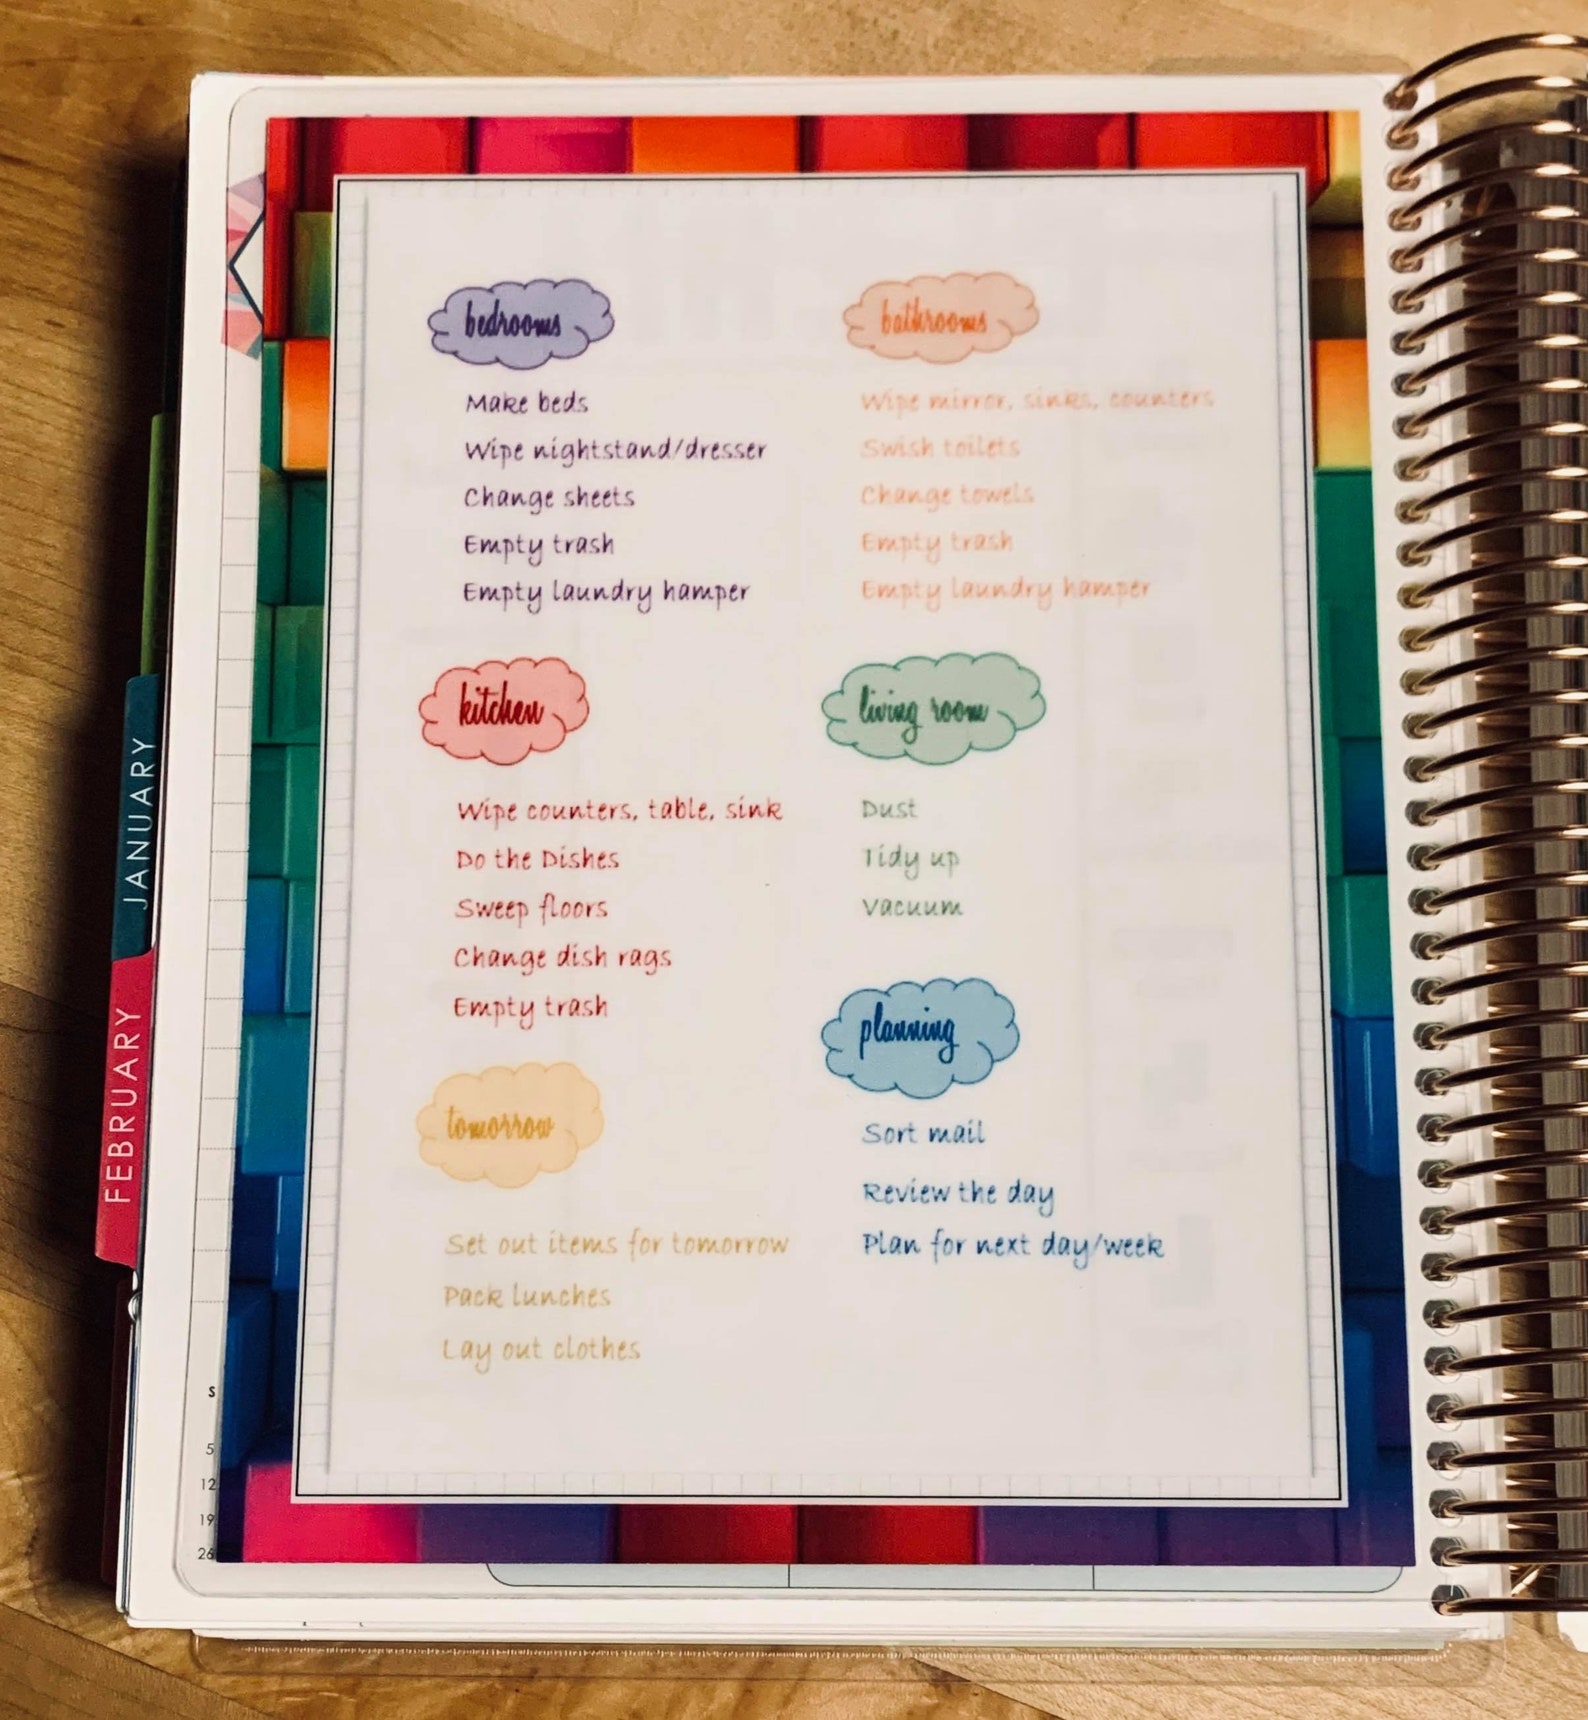 bedrooms
Make beds
Wipe nightstand/dresser
Change sheets
Empty trash
Empty laundry hamper
bathrooms
Wipe mirror, sinks, counters
Swish toilets
Change towels
Empty trash
Empty laundry hamper
kitchen
Wipe counters, table, sink
Do the Dishes
Sweep floors
Change dish rags
Empty trash
living room
Dust
Tidy up
Vacuum
tomorrow
Set out items for tomorrow
Pack lunches
Lay out clothes
planning
Sort mail
Review the day
Plan for next day/week
JANUARY
FEBRUARY
S
5
12
19
26